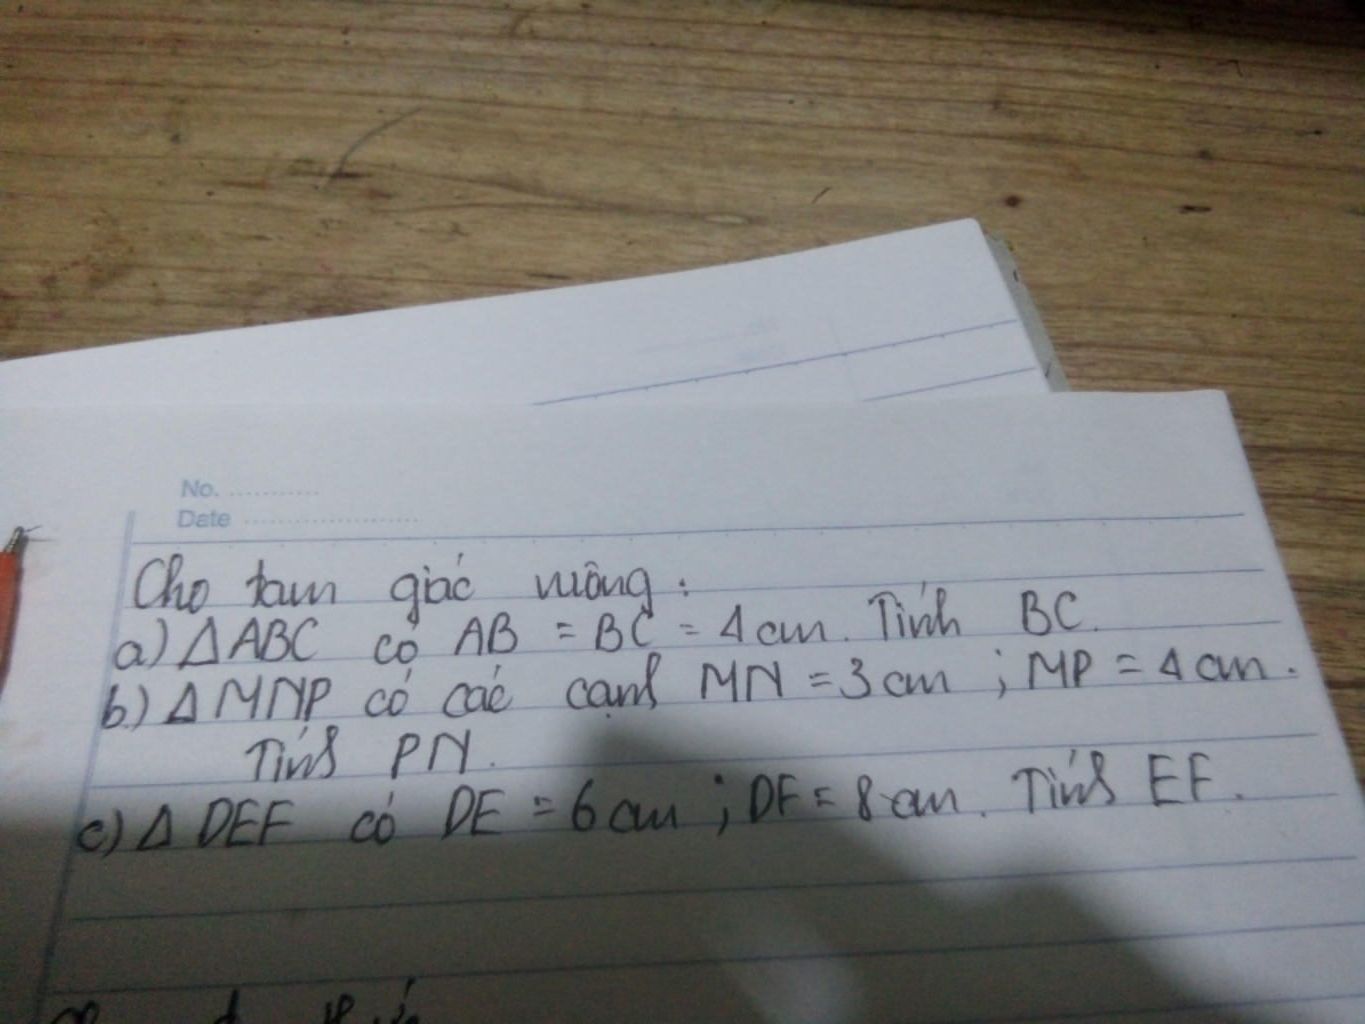 No. ...........
Date ....................
Cho tam giác vuông :
a) △ABC có AB = BC = 4 cm. Tính BC.
b) △MNP có các cạnh MN = 3 cm ; MP = 4 cm.
Tính PN.
c) △ DEF có DE = 6 cm ; DF = 8 cm. Tính EF.